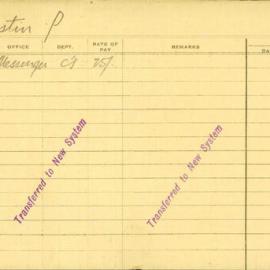 P
OFFICE DEPT. RATE OF PAY REMARKS DA
Messenger 25/-
Transferred to New System
Transferred to New System